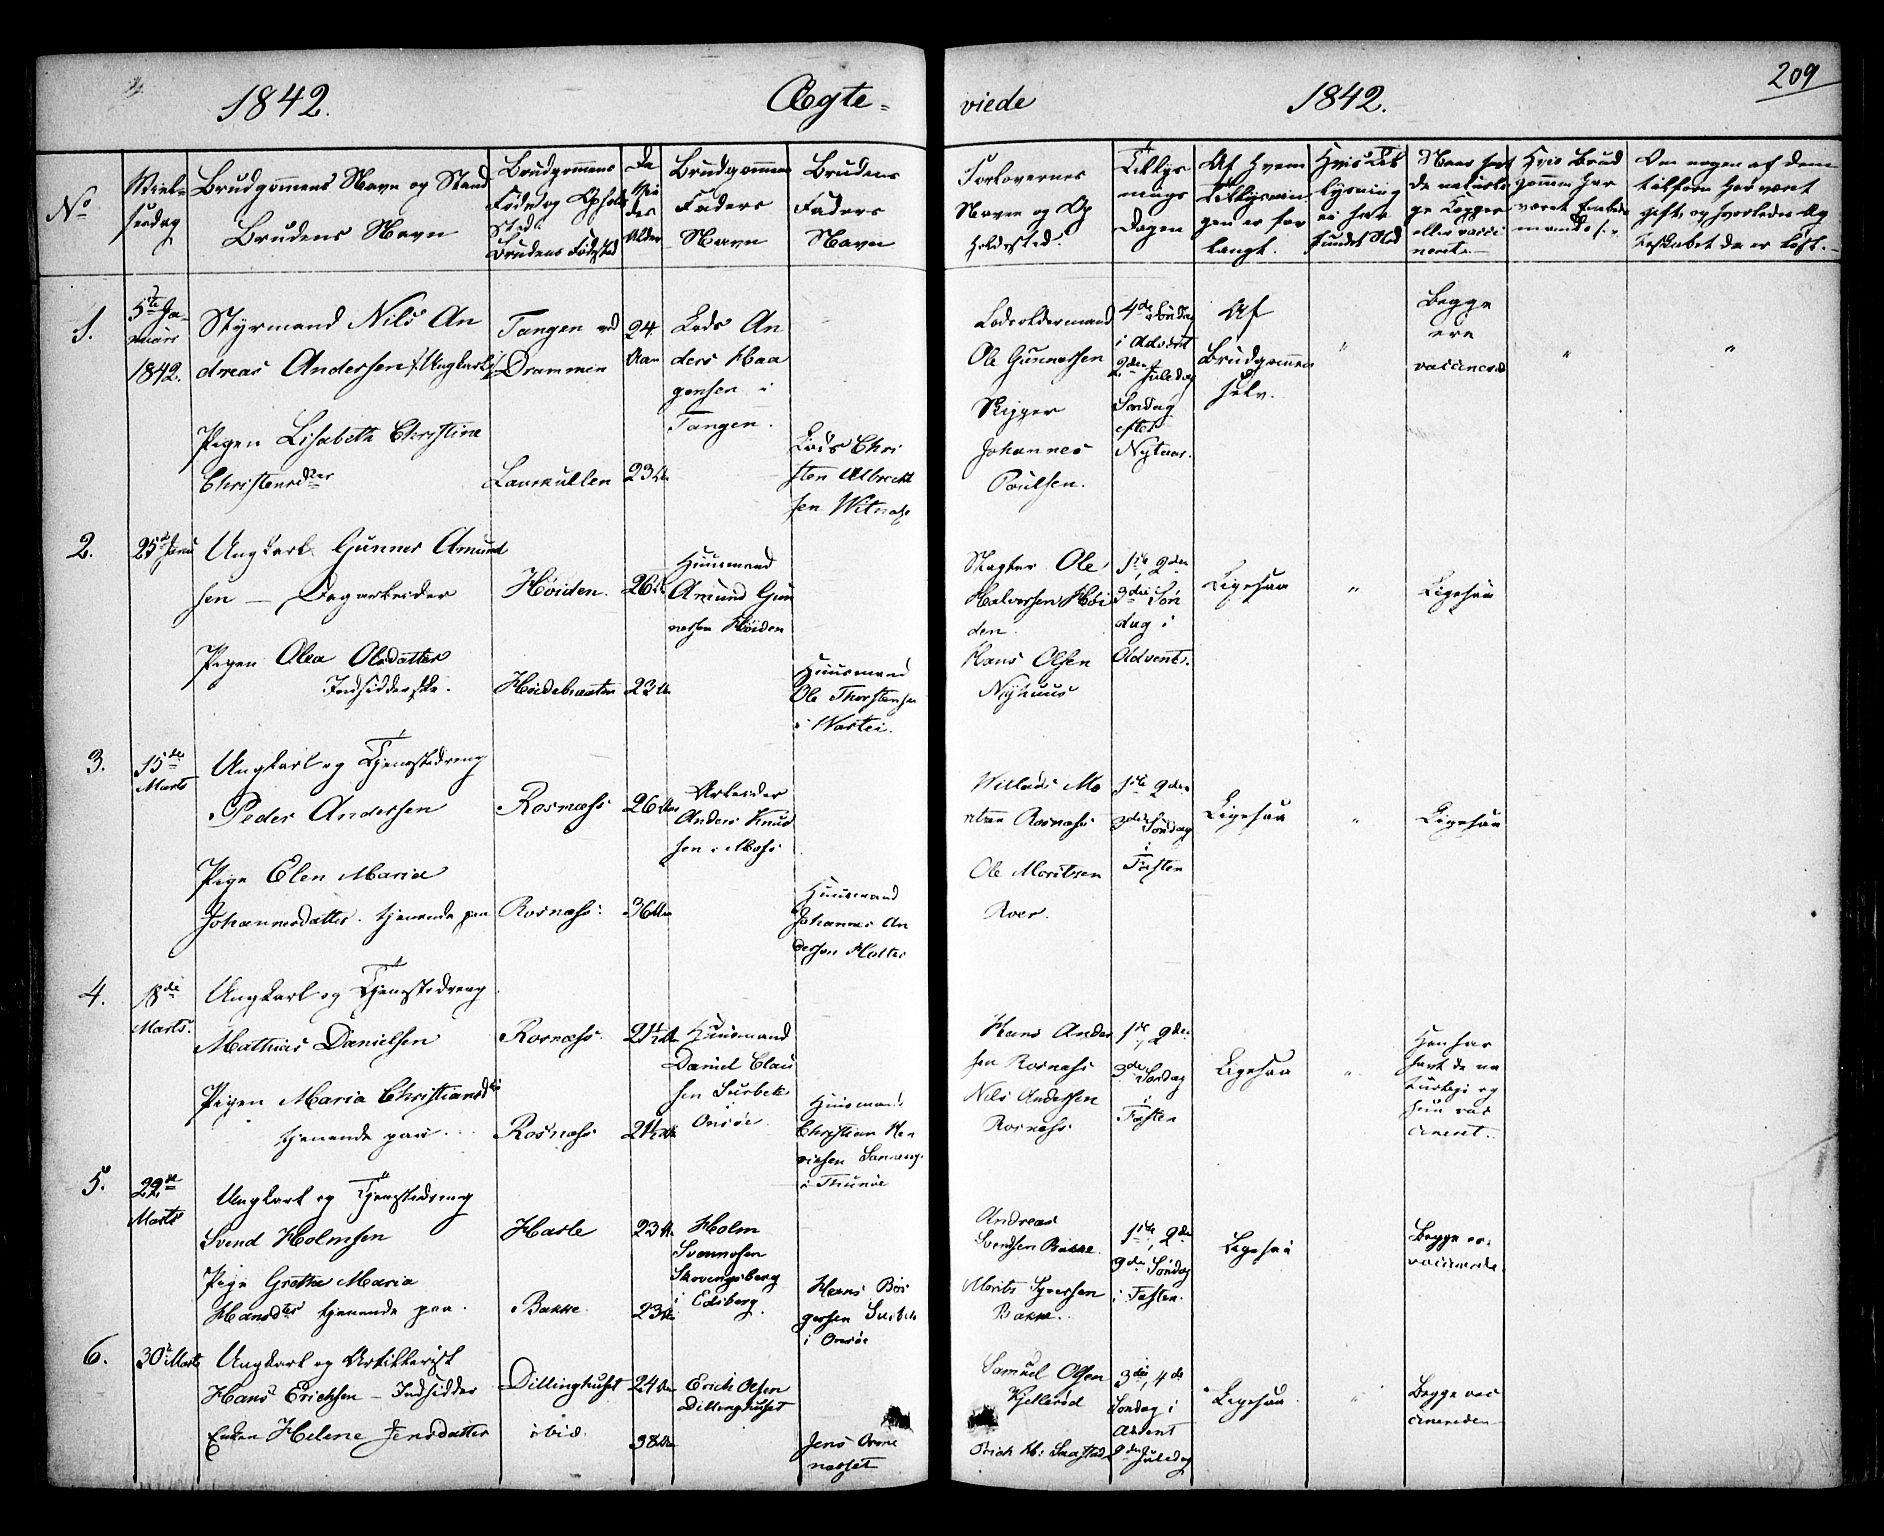 1842.
Ægte-
viede
1842.
209
No
Viel-
sesdag
Brudgommens Navn og Stand
Brudens Navn
Brudgommens
Føde og Opholds
Sted.
Brudens Fødested
De
Vie
des
Alder
Brudgommens
Faders
Navn
Brudens
Faders
Navn
Forlovernes
Navne og Op
holdested.
Tillys
nings
Dagen
Af Hvem
Tillysnin
gen er for
langt.
Hvis Til
lysning
ei har
fundet Sted
Naar havt
de naturli
ge Kopper
eller vacci
nerede
Hvis Brud
gommen har
været
Om nogen af dem
tilforn har været
gift, og hvorledes Æg
teskabet da er løst.
1.
5te Ja-
nuar
1842.
Styrmand Nils An
dreas Andersen (Ungkarl)
Pigen Lisabeth Christine
Christensdter
Tangen ved
Drammen
Laurkullen
24
Aar
23 Aar
Lods An
ders Haa
gensen i
Tangen.
Lods Chri
sten Albrecht
sen Witnæs
Lodsoldermand
Ole Gunnersen
Skipper
Johannes
Poulsen.
4de Søndag
i Advent
2den Juledag
Søndag
efter
Nytaar.
Af
Brudgommen
selv.
"
Begge
ere
vaccinerede
"
"
2.
25de Janu
Ungkarl Gunner Amund
sen — Dagarbeider
Pigen Olea Olsdatter
Indsidderske.
Høiden.
Høidebraaten
26 Aar
23 Aar
Huusmand
Amund Gun
nersen Høiden
Huusmand
Ole Thorstensen
i Wartei.
Slagter Ole
Halvorsen Høi
den.
Hans Olsen
Nyhuus
1ste, 2den
3die Søn
dag i
Advent.
Ligesaa
"
Ligesaa
3.
15de
Marts
Ungkarl og Tjenestedreng
Peder Andersen
Pige Elen Maria
Johannesdatter. tjenende paa
Rosnæss
Rosnæss.
26 Aar
36 Aar
Arbeider
Anders Knud
sen i Moss
Huusmand
Johannes An
dersen Holter
Willads Mo
Rosnæss
Ole Moritzen
Roer.
1ste 2den
3die Søndag
i
Fasten
Ligesaa
"
Ligesaa
4.
18de
Marts.
Ungkarl og Tjenestedreng
Mathias Danielsen
Pigen Maria Christiansdtr
tjenende paa
Rosnæss.
Rosnæss.
21½ Aar
21½ Aar
Huusmand
Daniel Clau
sen Surbek
Onsøe.
Huusmand
Christian Hen
richsen
i Thunøe
Hans Ander
sen Rosnæss
Nils Andersen
Rosnæss.
1ste, 2den
3die Søndag
i
Fasten
Ligesaa
"
Han har
havt de na
turlige og
hun vac
cineret.
5.
22de
Marts
Ungkarl og Tjenestedreng
Svend Holmsen
Pige Grethe Maria
Hansdtr tjenende paa.
Hasle
Bakke.
23 Aar
23 Aar
Holm
Svennesen
Skovengsberg
i Edsberg.
Hans Bør
gersen Surbek
i Onsøe
Andreas
Svendsen Bakke.
Morits Syversen
Bakke.
1ste, 2den
3die Søndag
i Fasten.
Ligesaa
Begge er
vaccinerede
6.
30te Marts
Ungkarl og Artillerist
Hans Erichsen — Indsidder
Enken Helene Jensdatter
Dillinghuset
ibid.
24 Aar
38 Aar
Erich Olsen
Dillinghuset
Jens Orme
næsset
Samuel Olsen
Kjellerød
Erich H. Saastad
3die, 4de
Søndag i
Advent
2den Juledag
Ligesaa
"
Begge vac
cinerede